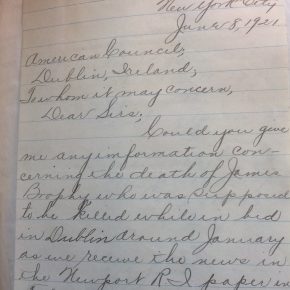 New York City
June 8, 1921
American Council,
Dublin, Ireland,
To whom it may concern,
Dear Sirs;
Could you give
me any information con-
cerning the death of James
Brophy who was supposed
to be killed while in bed
in Dublin around January
as we receive the news in
the Newport R.I paper in